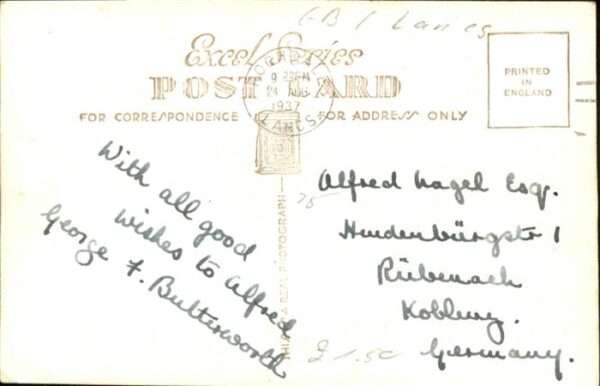 GB / Lancs
Excel Series
POST CARD
FOR CORRESPONDENCE
FOR ADDRESS ONLY
PRINTED
IN
ENGLAND
24 AUG
1937
LANCS
With all good
wishes to Alfred
George F. Butterworth
75
REAL PHOTOGRAPH
Alfred Nagel Esq.
Hindenbürgstr 1
Rübenach
Koblenz.
Germany.
£1.50